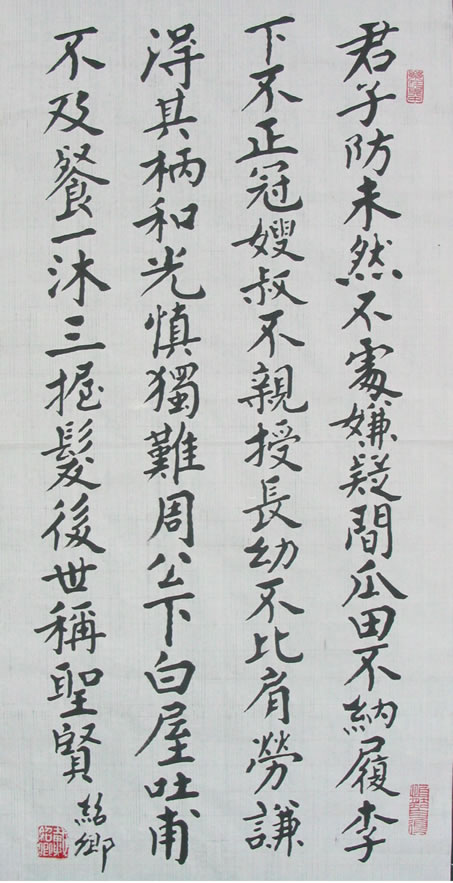 君子防未然不處嫌疑間瓜田不納履李
下不正冠嫂叔不親授長幼不比肩勞謙
得其柄和光慎獨難周公下白屋吐甫
不及餐一沐三握髮後世稱聖賢
紹鄉